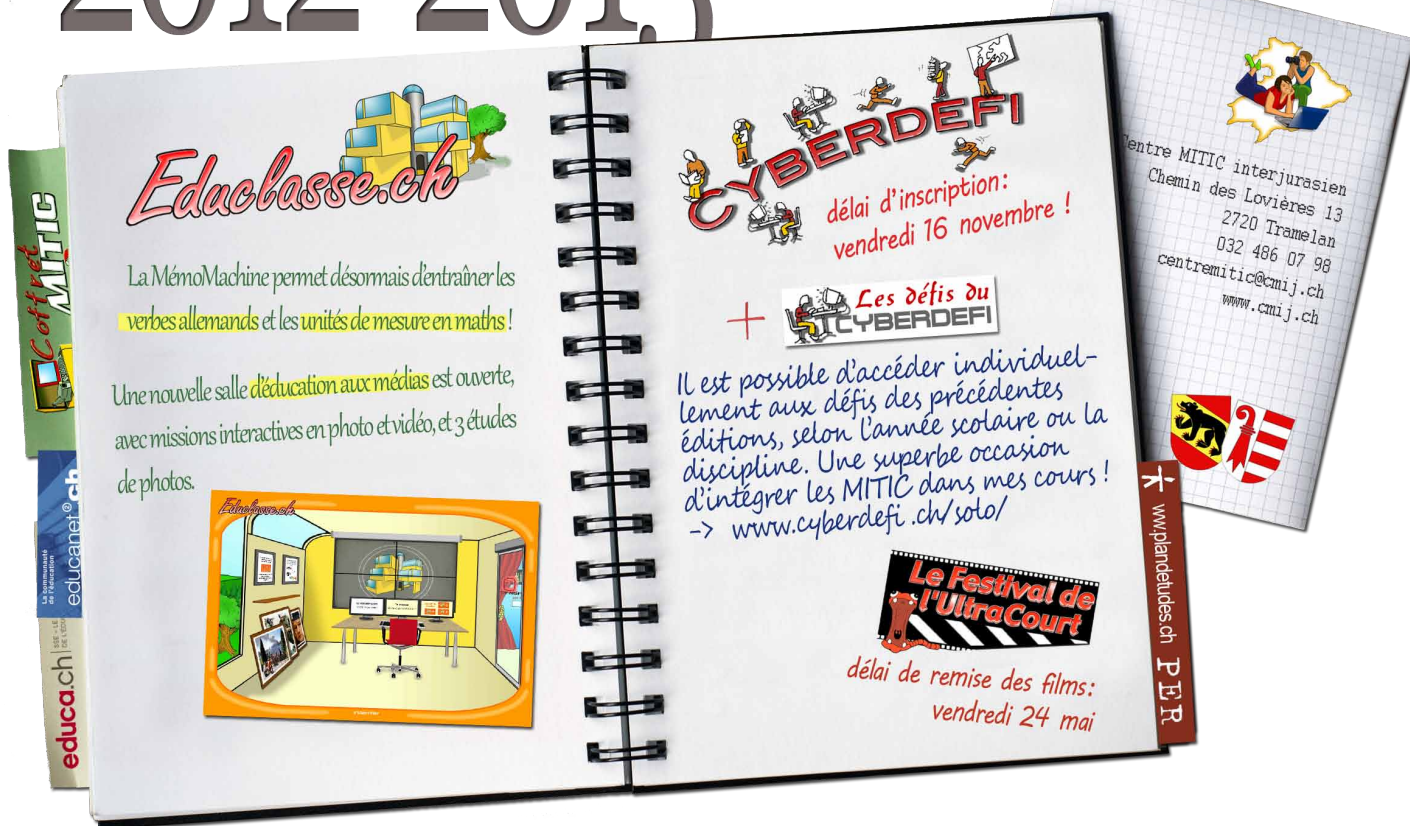 2012-2013
Educlasse.ch
La MémoMachine permet désormais d'entraîner les
verbes allemands et les unités de mesure en maths !
Une nouvelle salle d'éducation aux médias est ouverte,
avec missions interactives en photo et vidéo, et 3 études
de photos.
Educlasse.ch
CYBERDEFI
délai d'inscription:
vendredi 16 novembre !
+
Les défis du
CYBERDEFI
Il est possible d'accéder individuel-
lement aux défis des précédentes
éditions, selon l'année scolaire ou la
discipline. Une superbe occasion
d'intégrer les MITIC dans mes cours !
-> www.cyberdefi.ch/solo/
Le Festival de
l'UltraCourt
délai de remise des films:
vendredi 24 mai
Centre MITIC interjurasien
Chemin des Lovières 13
2720 Tramelan
032 486 07 98
centremitic@cmij.ch
www.cmij.ch
Coffret
MITIC
La communauté
de l'éducation
educanet®ch
educa.ch
www.plandetudes.ch PER